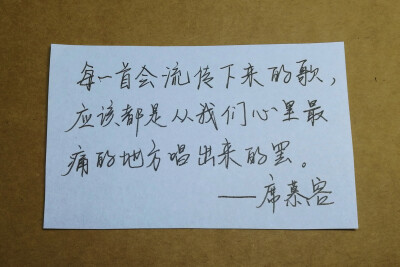 每一首会流传下来的歌，
应该都是从我们心里最
痛的地方唱出来的罢。
——席慕容